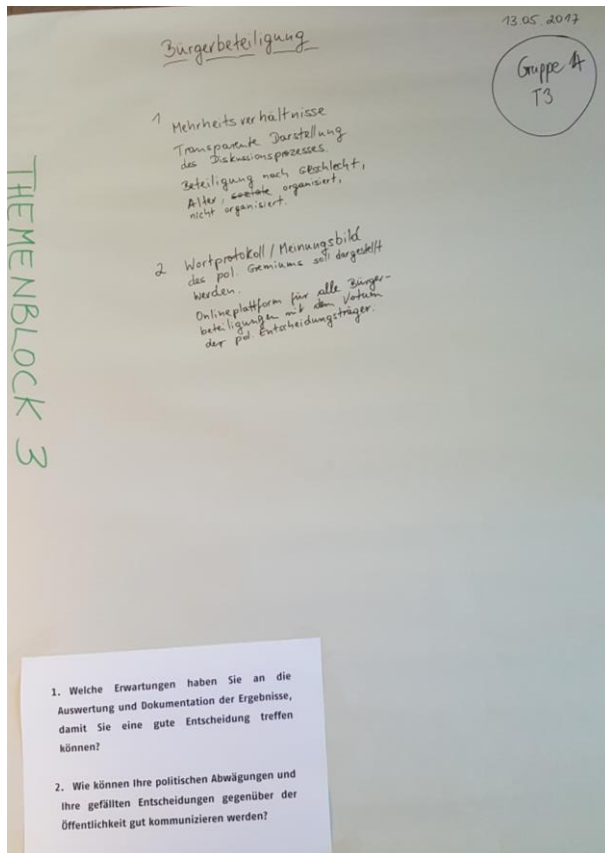 13.05.2017
Bürgerbeteiligung
Gruppe A
T3
1 Mehrheitsverhältnisse
Transparente Darstellung
des Diskussionsprozesses.
Beteiligung nach Geschlecht,
Alter, soziale organisiert,
nicht organisiert.
2 Wortprotokoll / Meinungsbild
des pol. Gremiums soll dargestellt
werden.
Onlineplattform für alle Bürger-
beteiligungen mit dem Votum
der pol. Entscheidungsträger.
THEMENBLOCK 3
1. Welche Erwartungen haben Sie an die
Auswertung und Dokumentation der Ergebnisse,
damit Sie eine gute Entscheidung treffen
können?
2. Wie können Ihre politischen Abwägungen und
Ihre gefällten Entscheidungen gegenüber der
Öffentlichkeit gut kommunizieren werden?